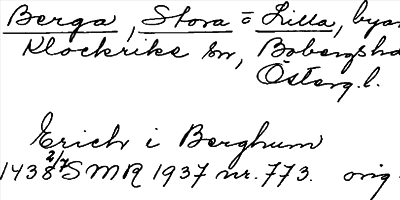 Berga, Stora o Lilla, byar
Klockrike sn, Bobergs hd
Österg. l.
Erich i Berghum
1438 2/7 SMR 1937 nr. 773. orig